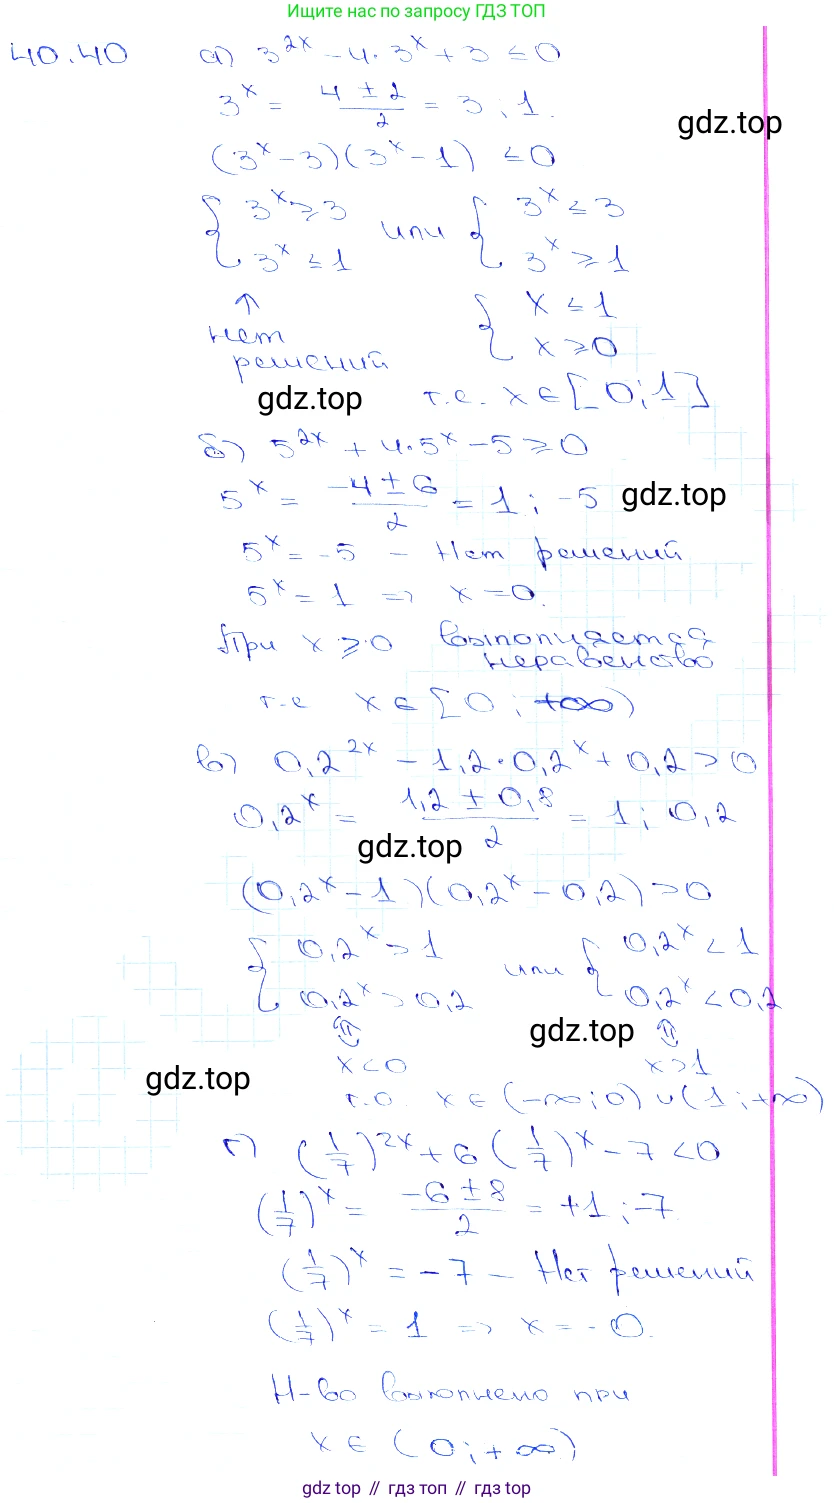 Ищите нас по запросу ГДЗ ТОП
40.40 а) 3^{2x} - 4·3^x + 3 ≤ 0
3^x = (4 ± 2)/2 = 3 ; 1.
gdz.top
(3^x - 3)(3^x - 1) ≤ 0
{ 3^x ≥ 3 или { 3^x ≤ 3
3^x ≤ 1 3^x ≥ 1
↑ { x ≤ 1
нет x ≥ 0
решений
gdz.top т.е. x ∈ [0; 1]
б) 5^{2x} + 4·5^x - 5 ≥ 0
5^x = (-4 ± 6)/2 = 1 ; -5 gdz.top
5^x = -5 - Нет решений
5^x = 1 => x = 0.
При x ≥ 0 выполняется
неравенство
т.е x ∈ [0 ; +∞)
в) 0,2^{2x} - 1,2·0,2^x + 0,2 > 0
0,2^x = (1,2 ± 0,8)/2 = 1 ; 0,2
gdz.top
(0,2^x - 1)(0,2^x - 0,2) > 0
{ 0,2^x > 1 или { 0,2^x < 1
0,2^x > 0,2 0,2^x < 0,2
⇕ gdz.top ⇕
gdz.top x < 0 x > 1
т.о. x ∈ (-∞; 0) ∪ (1; +∞)
г) (1/7)^{2x} + 6(1/7)^x - 7 < 0
(1/7)^x = (-6 ± 8)/2 = +1 ; -7
(1/7)^x = -7 - Нет решений
(1/7)^x = 1 => x = -0.
Н-во выполнено при
x ∈ (0; +∞)
gdz.top // гдз топ // gdz top